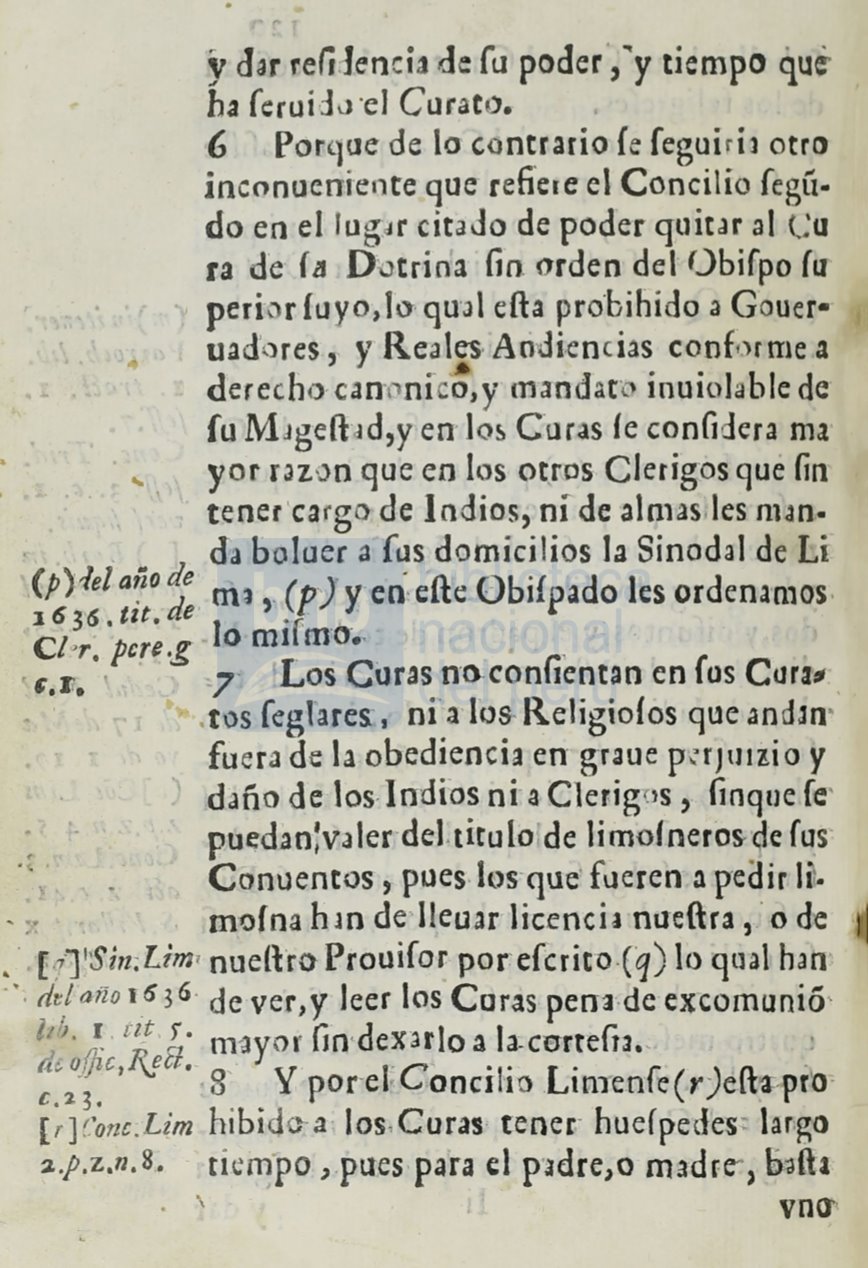 y dar residencia de su poder, y tiempo que
ha seruido el Curato.
6 Porque de lo contrario se seguiria otro
inconueniente que refiere el Concilio segũ-
do en el lugar citado de poder quitar al Cu
ra de la Dotrina sin orden del Obispo su
perior suyo, lo qual esta prohibido a Gouer-
uadores, y Reales Audiencias conforme a
derecho canonico, y mandato inuiolable de
su Magestad, y en los Curas se considera ma
yor razon que en los otros Clerigos que sin
tener cargo de Indios, ni de almas les man-
da boluer a sus domicilios la Sinodal de Li
ma, (p) y en este Obispado les ordenamos
lo mismo.
7 Los Curas no consientan en sus Cura-
tos seglares, ni a los Religiosos que andan
fuera de la obediencia en graue perjuizio y
daño de los Indios ni a Clerigos, sinque se
puedan valer del titulo de limosneros de sus
Conuentos, pues los que fueren a pedir li-
mosna han de lleuar licencia nuestra, o de
nuestro Prouisor por escrito (q) lo qual han
de ver, y leer los Curas pena de excomunió
mayor sin dexarlo a la cortesia.
8 Y por el Concilio Limense (r) esta pro
hibido a los Curas tener huespedes largo
tiempo, pues para el padre, o madre, basta
vno
(p) del año de
1636. tit. de
Cler. pere.g
c.1.
[q] Sin. Lim
del año 1636
lib. 1 tit 5.
de offic, Rect.
c.23.
[r] Conc. Lim
2.p.z.n.8.
biblioteca
nacional